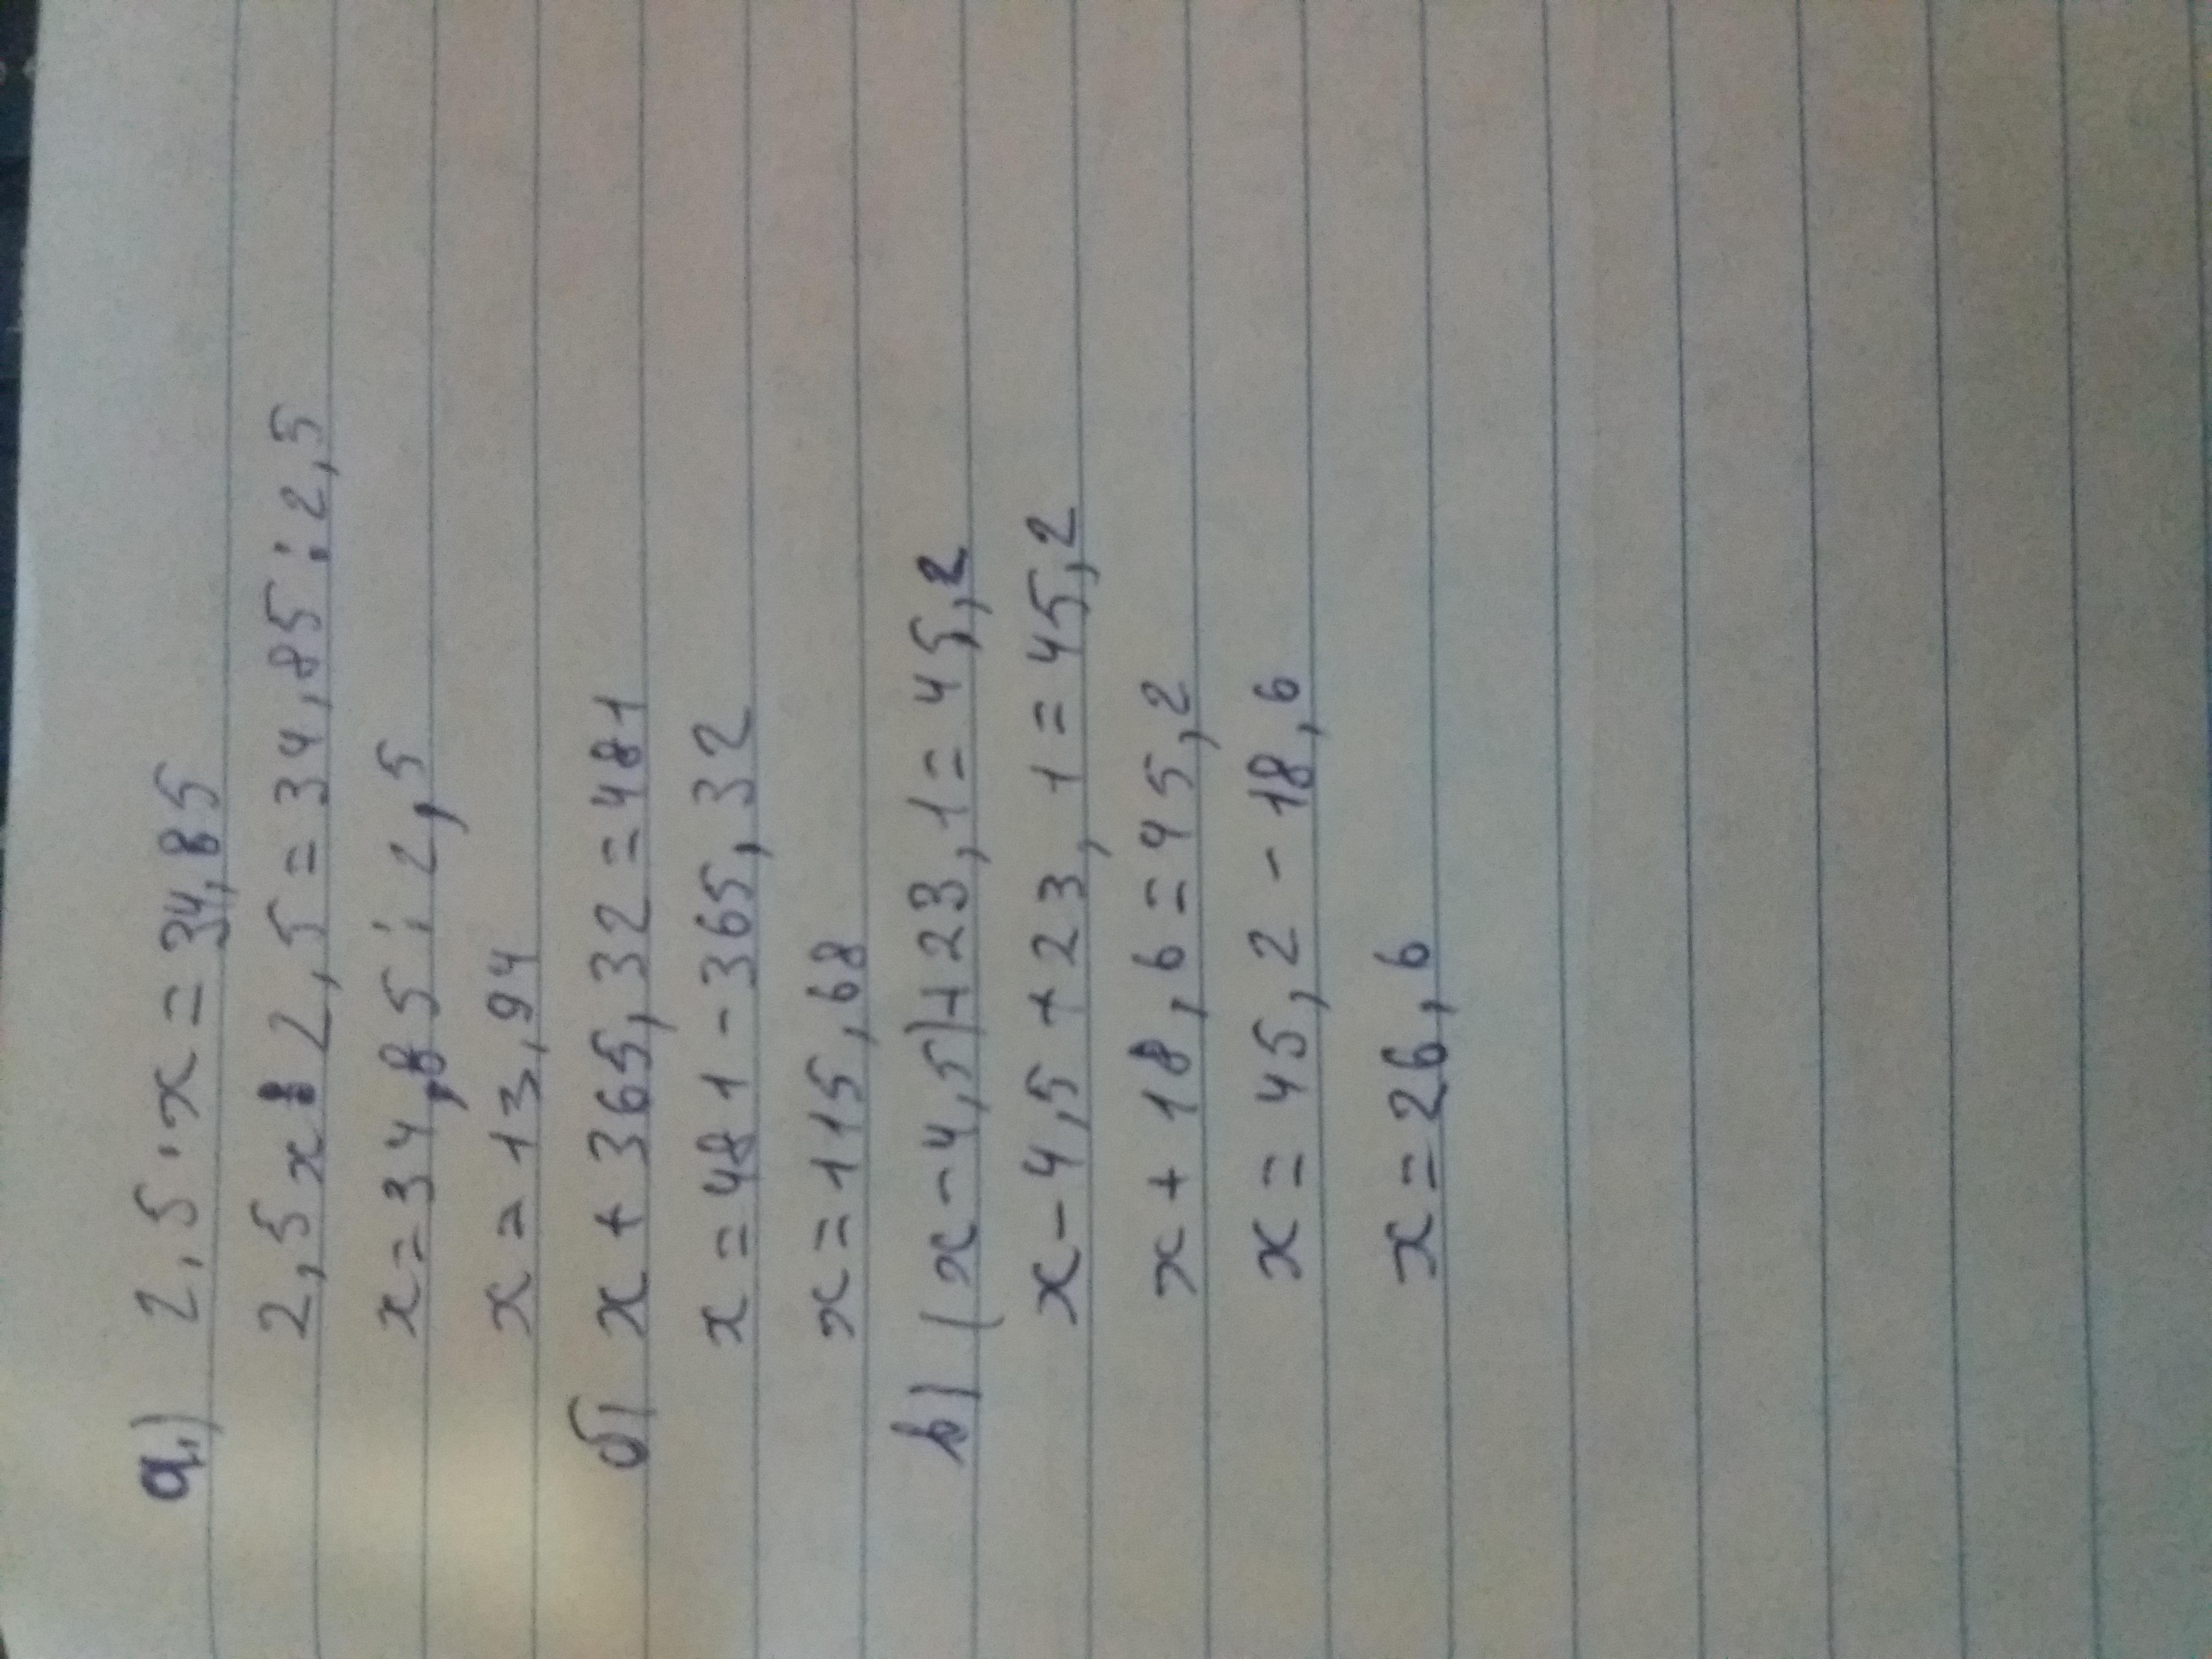 а.) 2,5 · x = 34,85
2,5x : 2,5 = 34,85 : 2,5
x = 34,85 : 2,5
x = 13,94
б) x + 365,32 = 481
x = 481 - 365,32
x = 115,68
в) (x - 4,5) + 23,1 = 45,2
x - 4,5 + 23,1 = 45,2
x + 18,6 = 45,2
x = 45,2 - 18,6
x = 26,6